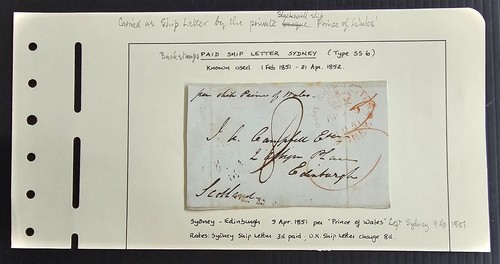 Carried as Ship Letter by the private barque Blackwall ship 'Prince of Wales'
Backstamps PAID SHIP LETTER SYDNEY (Type SS6)
Known used 1 Feb 1851 - 21 Apr. 1852.
per ship Prince of Wales
J. A. Campbell Esqre
2 Albyn Place
Edinburgh
Scotland
8
Sydney - Edinburgh 9 Apr. 1851 per "Prince of Wales" Left Sydney 9 Apl 1851
Rates: Sydney Ship Letter 3d paid; U.K. Ship Letter charge 8d.